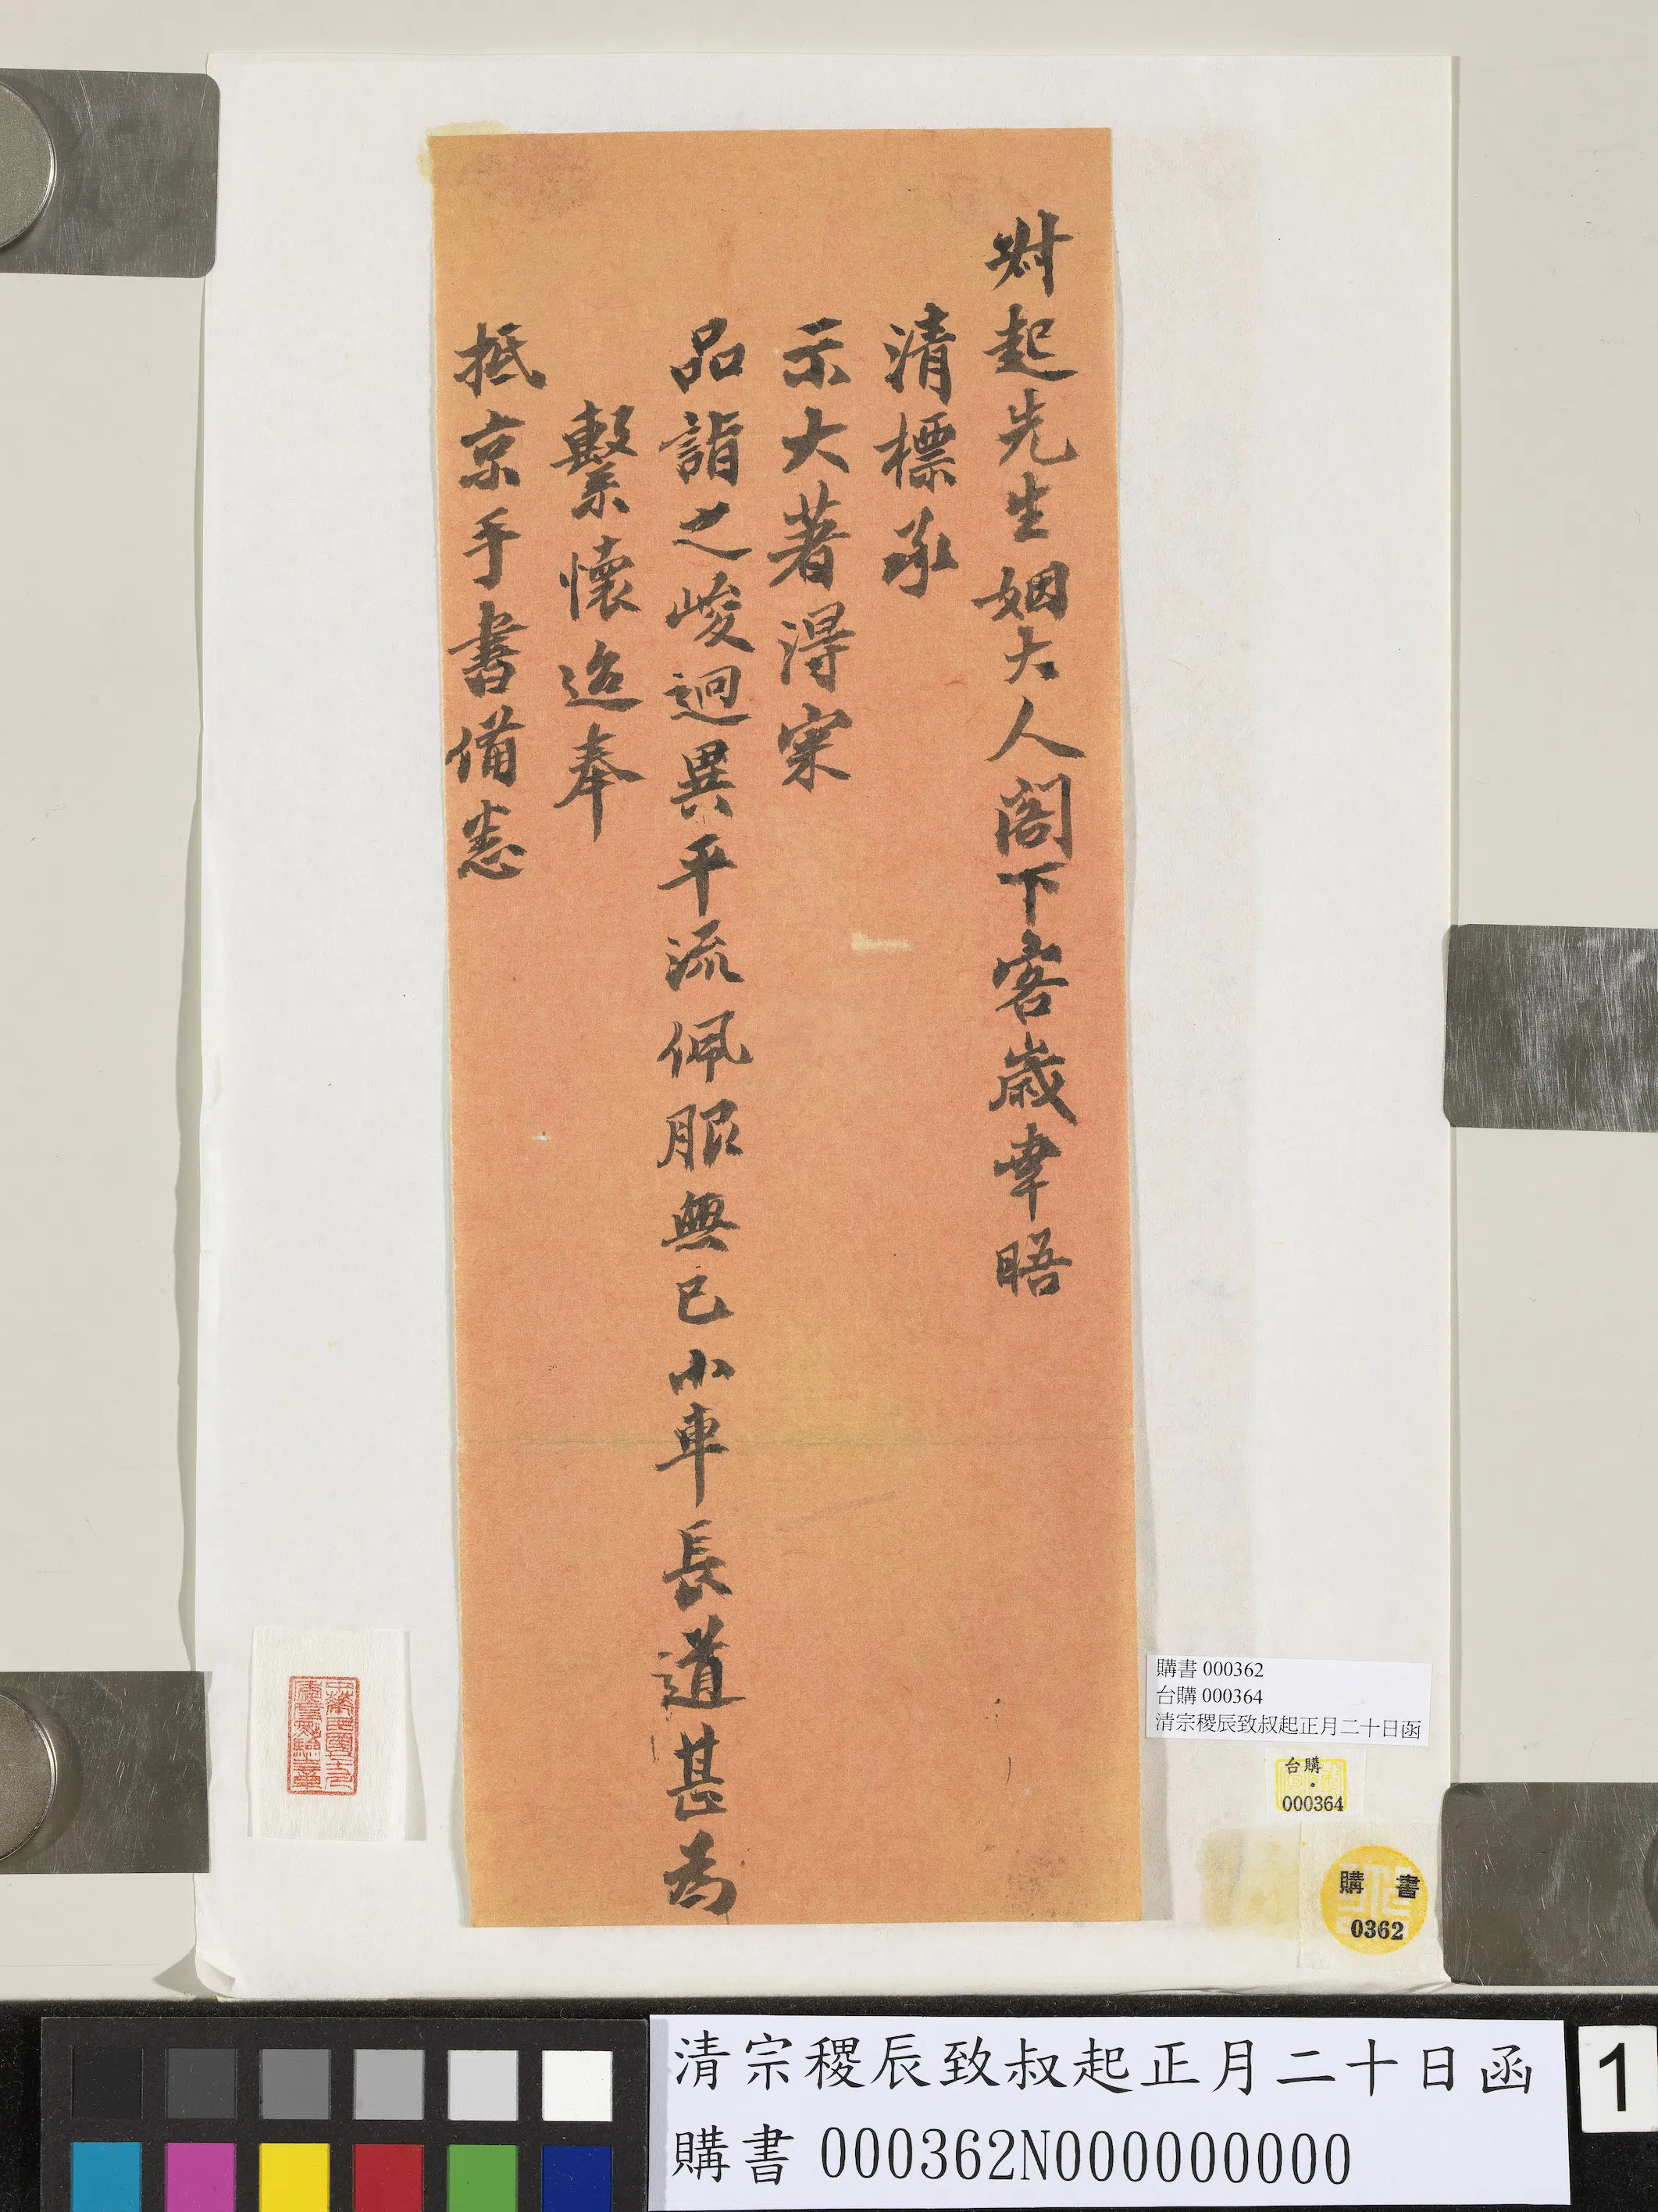 叔起先生姻大人閣下客歲幸晤
清標承
示大著得宷
品詣之峻迥異平流佩服無已小車長道甚為
繫懷迨奉
抵京手書備悉
購書 000362
台購 000364
清宗稷辰致叔起正月二十日函
台購
000364
購書
0362
清宗稷辰致叔起正月二十日函
購書 000362N000000000
1